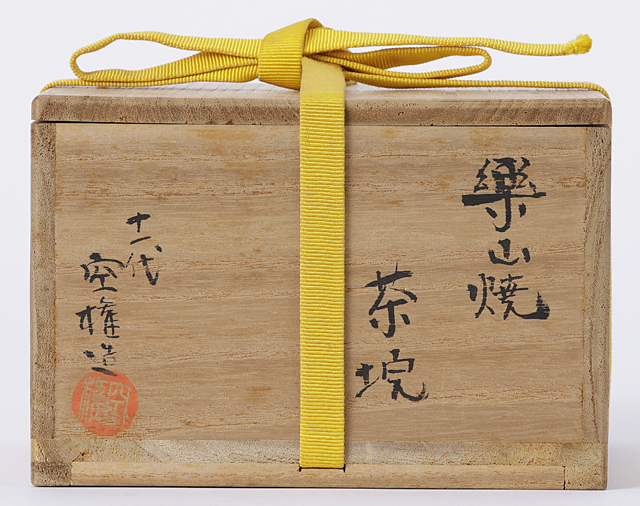 樂山焼
茶埦
十一代
空権造